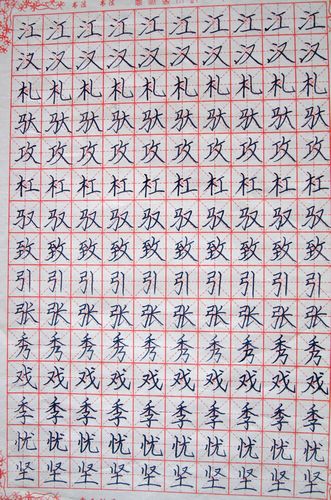 书法 书法
江江江江江江江江江江
汉汉汉汉汉汉汉汉汉汉
札札札札札札札札札札
驮驮驮驮驮驮驮驮驮驮
攻攻攻攻攻攻攻攻攻攻
杠杠杠杠杠杠杠杠杠杠
驭驭驭驭驭驭驭驭驭驭
致致致致致致致致致致
引引引引引引引引引引
张张张张张张张张张张
秀秀秀秀秀秀秀秀秀秀
戏戏戏戏戏戏戏戏戏戏
季季季季季季季季季季
忧忧忧忧忧忧忧忧忧忧
坚坚坚坚坚坚坚坚坚坚